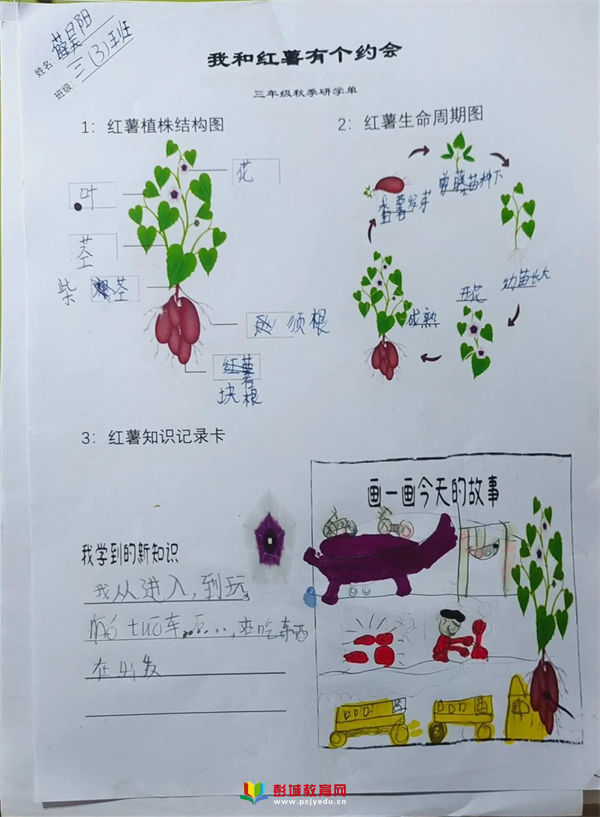 姓名: 薛昊阳
班级: 三(3)班
我和红薯有个约会
三年级秋季研学单
1: 红薯植株结构图
2: 红薯生命周期图
叶
花
茎
柴 茎
须根
红薯
块根
番薯发芽
藤苗种下
幼苗长大
开花
成熟
3: 红薯知识记录卡
画一画今天的故事
我学到的新知识
我从进入,到玩
tuō车
来吃东西
在出发
彭城教育网
www.pcjyedu.cn